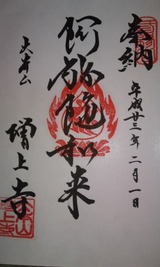 奉納
平成廿三年二月一日
阿弥陀如来
大本山
増上寺